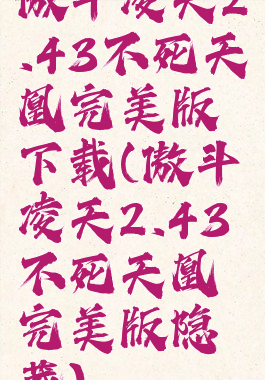 傲斗凌天2
.43不死天
凰完美版
下载(傲斗
凌天2.43
不死天凰
完美版隐
藏)